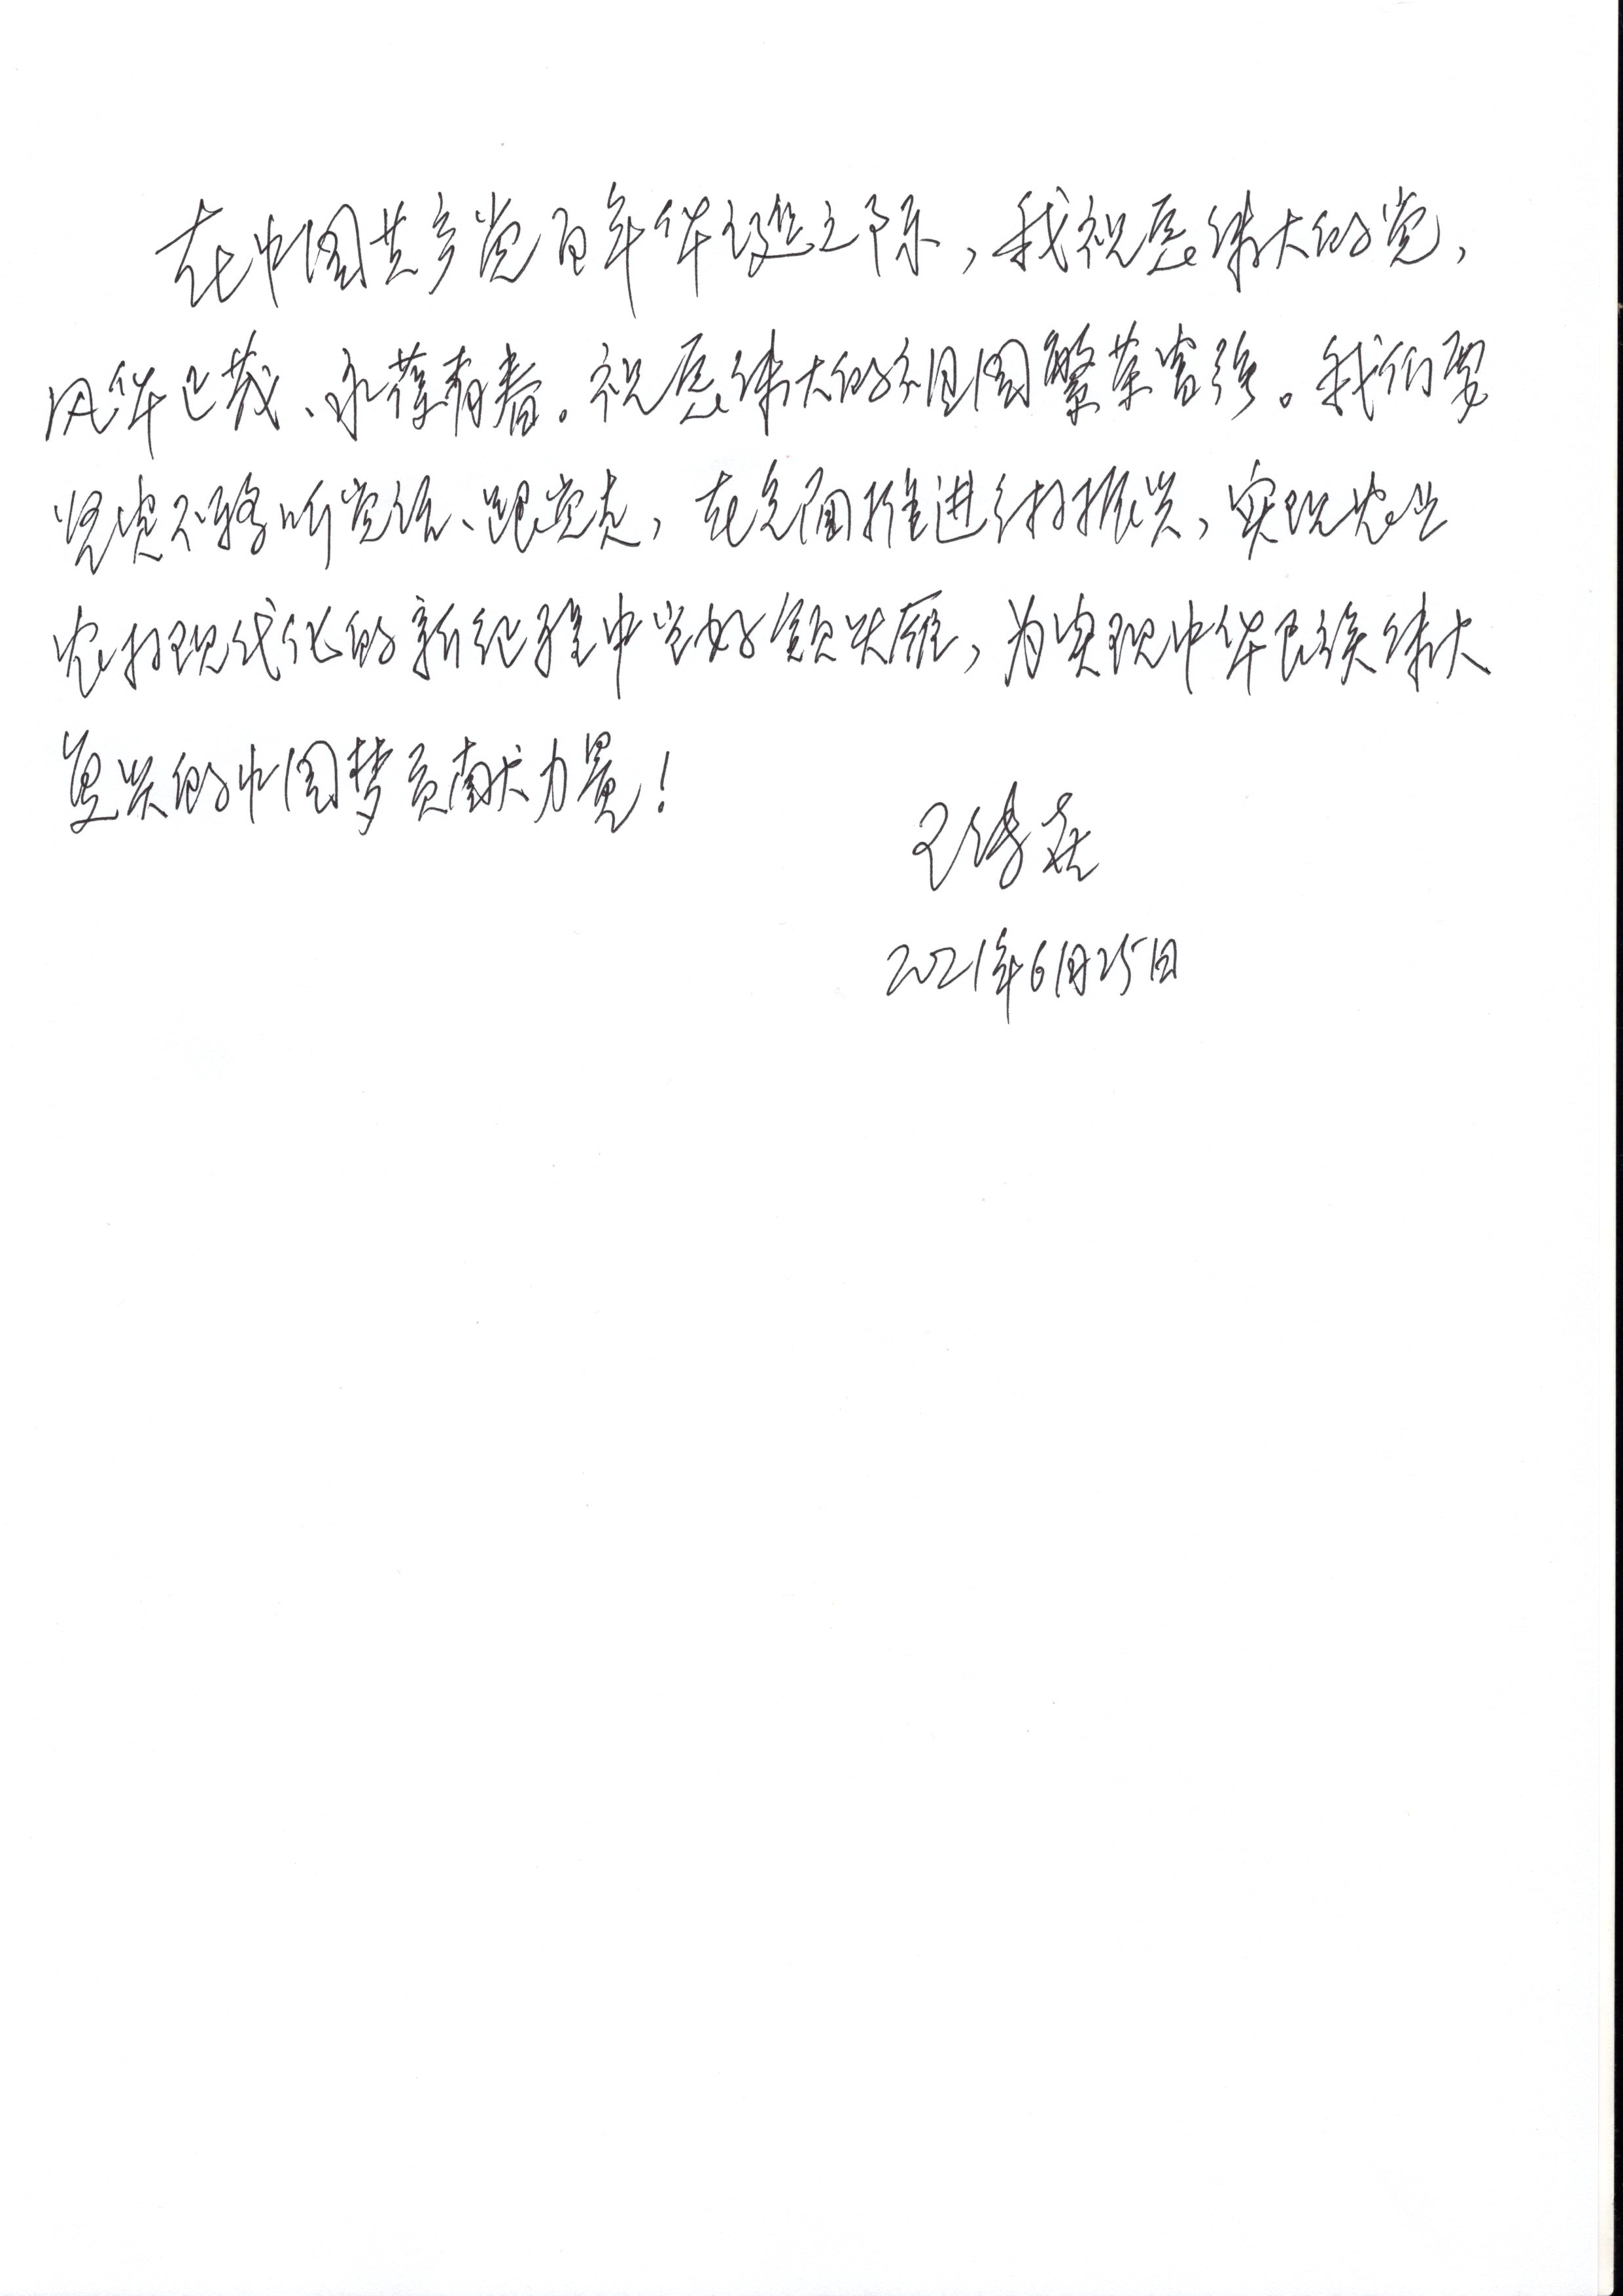 在中国共产党百年华诞之际，我祝愿伟大的党，
风华正茂、永葆青春。祝愿伟大的祖国繁荣富强。我们要
坚定不移听党话、跟党走，在全面推进乡村振兴，实现农业
农村现代化的新征程中当好领头雁，为实现中华民族伟大
复兴的中国梦贡献力量！
王传喜
2021年6月25日